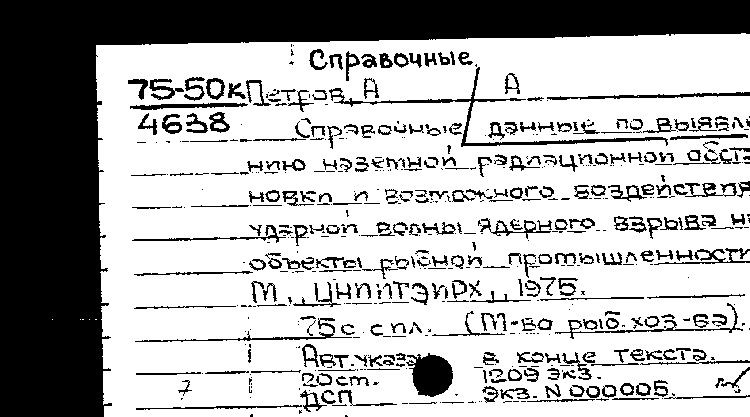 Справочные
75-50к Петров, А А
4638 Справочные данные по выявле
нию наземной радиационной обста
новки и возможного воздействия
ударной волны ядерного взрыва на
объекты рыбной промышленности
М., ЦНИИТЭИРХ, 1975.
75с с ил. (М-во рыб. хоз-ва).
Авт. указан в конце текста.
7 20см. 1209 экз.
ДСП Экз. N 000005.